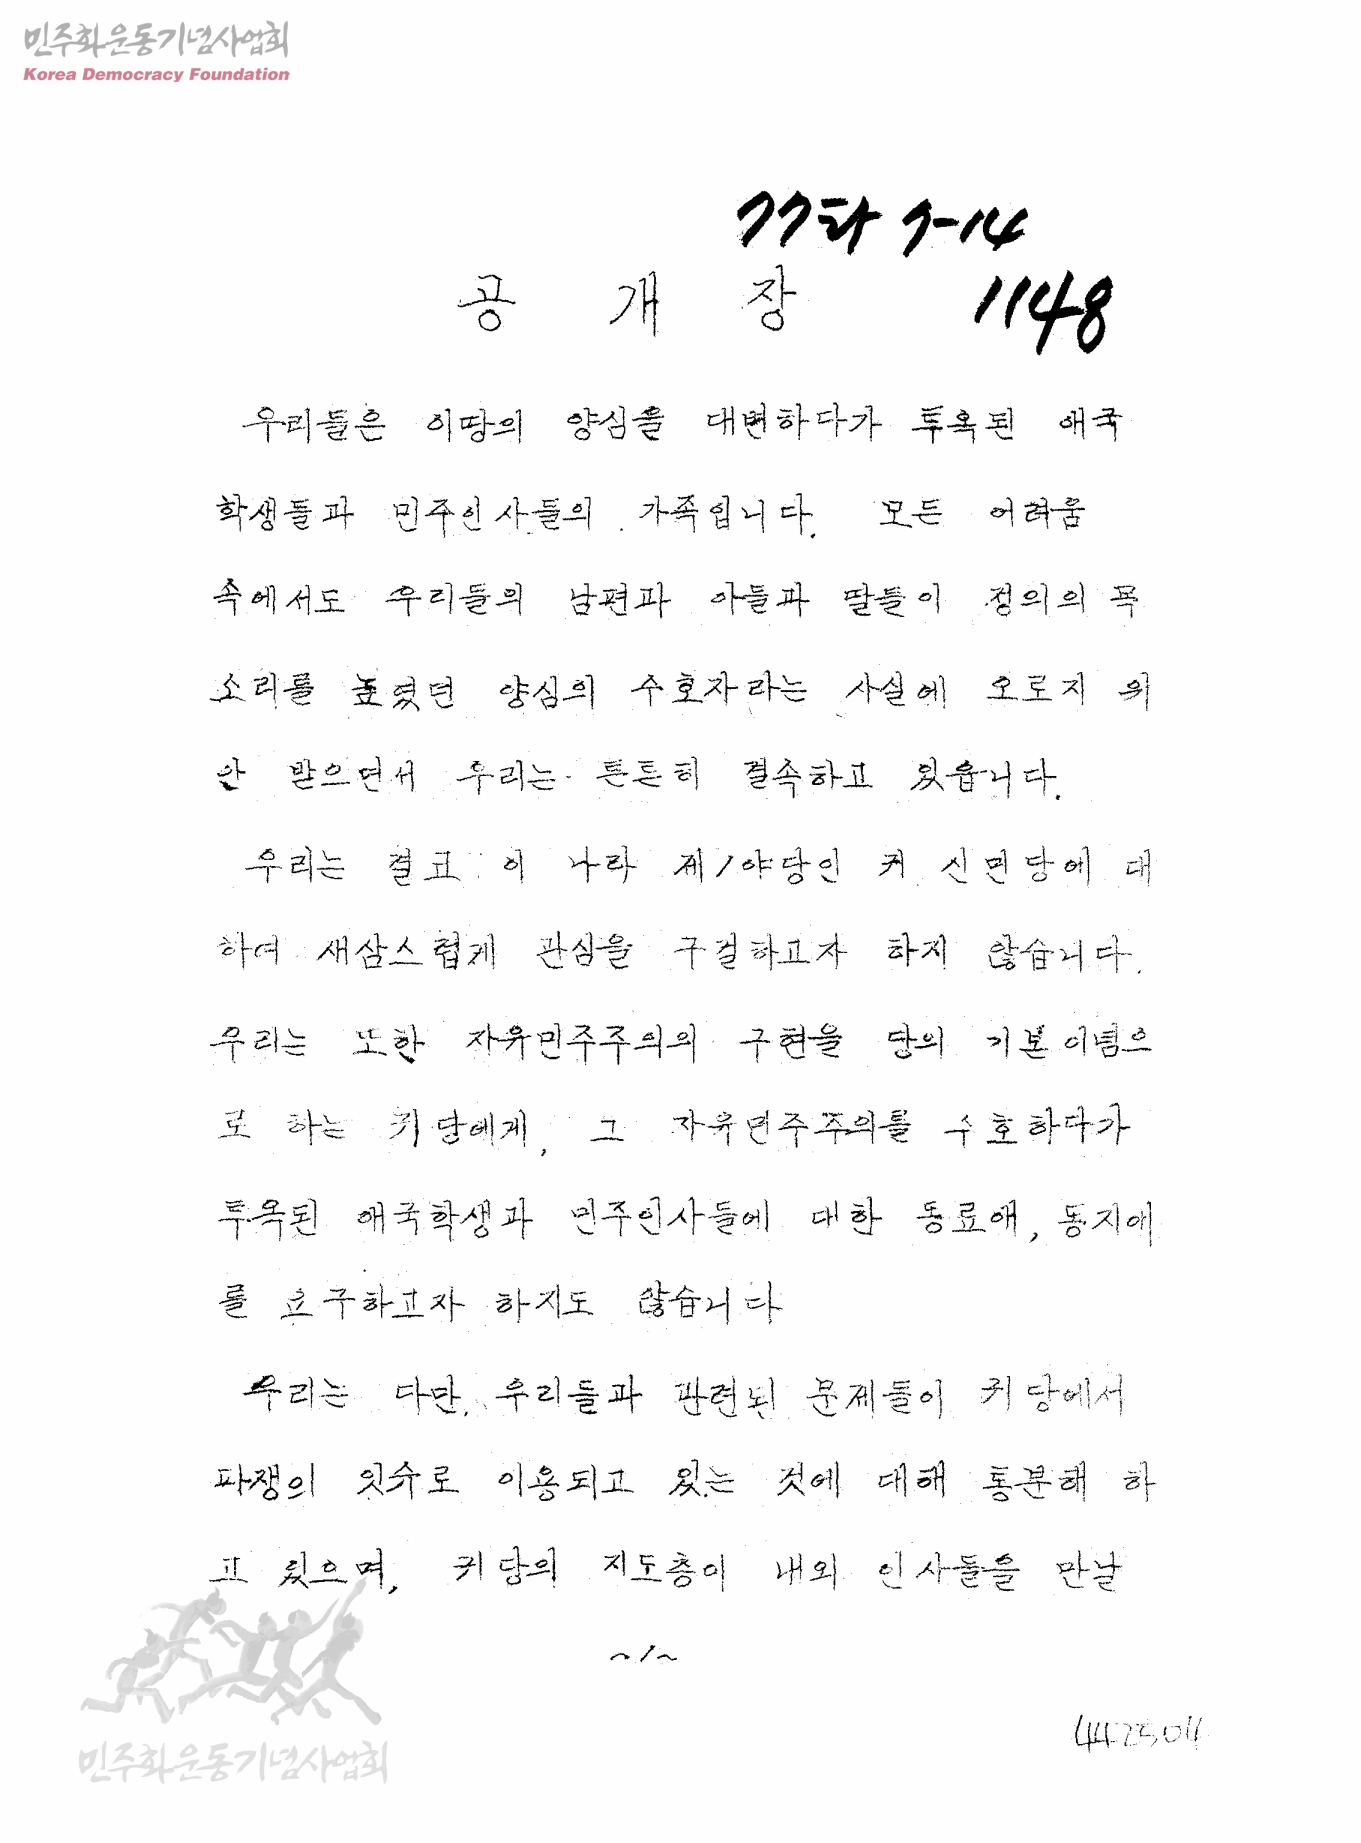 민주화운동기념사업회
Korea Democracy Foundation
77타 7-14
공 개 장
1148
우리들은 이땅의 양심을 대변하다가 투옥된 애국
학생들과 민주인사들의 가족입니다. 모든 어려움
속에서도 우리들의 남편과 아들과 딸들이 정의의 목
소리를 높였던 양심의 수호자라는 사실에 오로지 위
안 받으면서 우리는 튼튼히 결속하고 있읍니다.
우리는 결코 이 나라 제1야당인 귀 신민당에 대
하여 새삼스럽게 관심을 구걸하고자 하지 않습니다.
우리는 또한 자유민주주의의 구현을 당의 기본이념으
로 하는 귀당에게, 그 자유민주주의를 수호하다가
투옥된 애국학생과 민주인사들에 대한 동료애, 동지애
를 요구하고자 하지도 않습니다
우리는 다만, 우리들과 관련된 문제들이 귀당에서
파쟁의 잇슈로 이용되고 있는 것에 대해 통분해 하
고 있으며, 귀당의 지도층이 내외 인사들을 만날
~1~
442504
민주화운동기념사업회